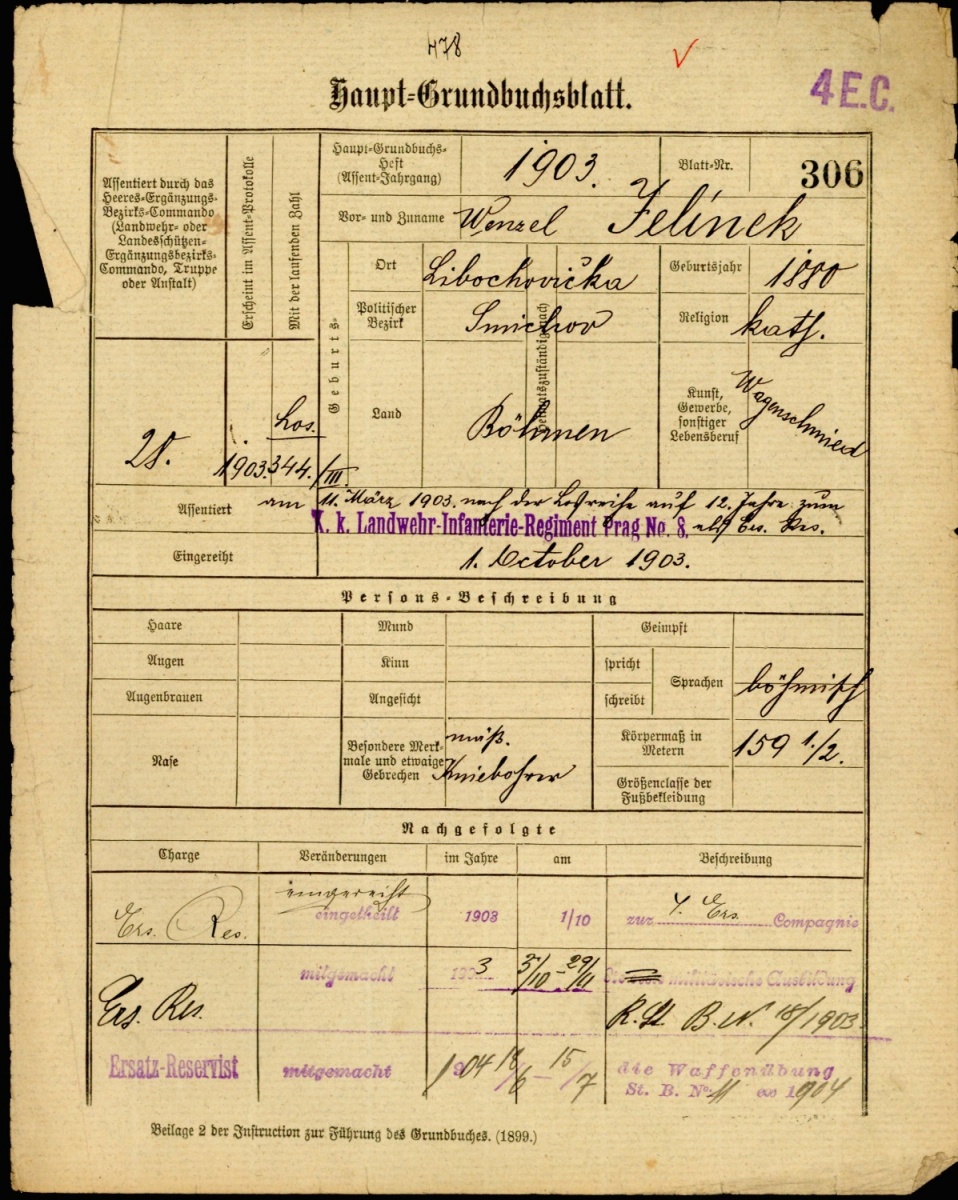 478
Haupt-Grundbuchsblatt.
4 E.C.
Assentiert durch das
Heeres-Ergänzungs-
Bezirks-Commando
(Landwehr- oder
Landesschützen-
Ergänzungsbezirks-
Commando, Truppe
oder Anstalt)
Erscheint im Assent-Protokolle
Mit der laufenden Zahl
28.
1903.
Los.
344./III.
Haupt-Grundbuchs-
Heft
(Assent-Jahrgang)
1903.
Blatt-Nr.
306
Vor- und Zuname
Wenzel Jelínek
Geburts-
Ort
Libochovička
Geburtsjahr
1880
Politischer
Bezirk
Smichov
Heimatszuständig nach
Religion
kath.
Land
Böhmen
Kunst,
Gewerbe,
sonstiger
Lebensberuf
Wagenschmied
Assentiert
am 11. März 1903. nach der Losreihe auf 12. Jahre zum
K. k. Landwehr-Infanterie-Regiment Prag No. 8. als Ers. Res.
Eingereiht
1. October 1903.
Persons-Beschreibung
Haare
Mund
Geimpft
Augen
Kinn
spricht
schreibt
Sprachen
böhmisch
Augenbrauen
Angesicht
Nase
Besondere Merk-
male und etwaige
Gebrechen
mäß.
Kniebohrer
Körpermaß in
Metern
159 1/2.
Größenclasse der
Fußbekleidung
Nachgefolgte
Charge
Veränderungen
im Jahre
am
Beschreibung
Ers. Res.
eingereiht
eingetheilt
1903
1/10
zur 4. Ers. Compagnie
Ers. Res.
mitgemacht
1903
3/10 - 29/11
militärische Ausbildung
B. N. 18/1903
Ersatz-Reservist
mitgemacht
1904
18/6 - 15/7
die Waffenübung
St. B. No. 11 ex 1904
Beilage 2 der Instruction zur Führung des Grundbuches. (1899.)